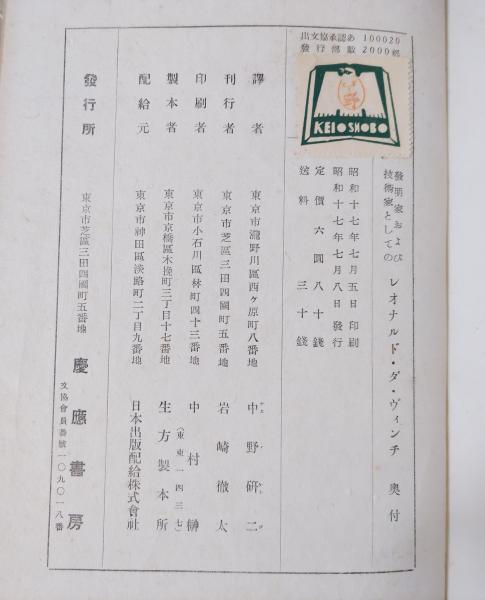 出文協承認あ 100020
發行部數 2000部
野
KEIO SHOBO
發明家および
技術家としての
レオナルド・ダ・ヴィンチ 奥付
昭和十七年七月五日印刷
昭和十七年七月八日發行
定價六圓八十錢
送料 三十錢
譯者 東京市瀧野川區西ケ原町八番地 中野研二
刊行者 東京市芝區三田四國町五番地 岩崎徹太
印刷者 東京市小石川區林町四十三番地 中村榊
(東東一四三七)
製本者 東京市京橋區木挽町三丁目十七番地 生方製本所
配給元 東京市神田區淡路町二丁目九番地 日本出版配給株式會社
發行所 東京市芝區三田四國町五番地 慶應書房
文協會員番號一〇九〇一八番